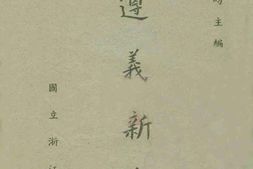 主編
遵義新
國立浙